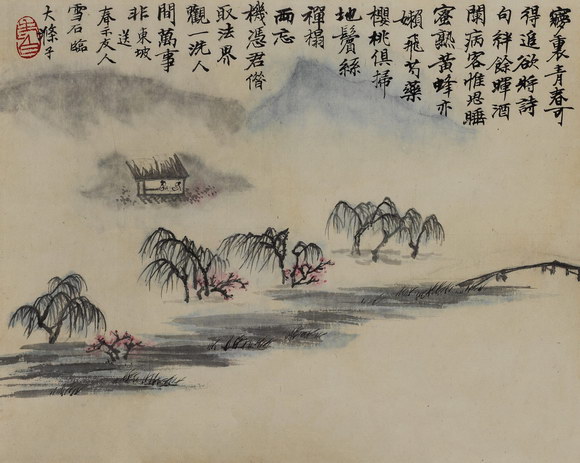 夢裏青春可
得追欲將詩
句絆餘暉酒
闌病客惟思睡
蜜熟黃蜂亦
嬾飛芍藥
櫻桃俱掃
地鬢絲
禪榻
兩忘
機憑君借
取法界
觀一洗人
間萬事
非東坡
送
春示友人
雪石臨
大滌子